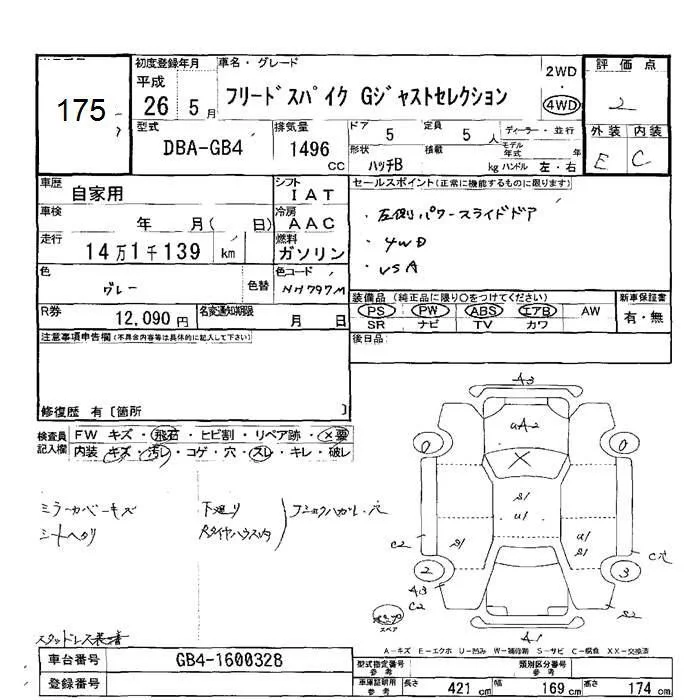 175
初度登録年月
平成
26 5 月
車名・グレード
フリードスパイク Gジャストセレクション
2WD
4WD
評価点
2
外装 内装
E C
型式
DBA-GB4
排気量
1496
CC
ドア 5 定員 5 人
形状 積載
ハッチB kg
ディーラー・並行
モデル年式 年
ハンドル 左・右
車歴 自家用
シフト I A T
車検 年 月( 日)
冷房 A A C
走行 14 万 1 千 139 km
燃料 ガソリン
色 グレー 色替
色コード NH797M
R券 12,090 円
名変通知期限 月 日
セールスポイント(正常に機能するものに限ります)
・左側パワースライドドア
・4WD
・VSA
装備品(純正品に限り○をつけてください)
PS PW ABS エアB AW
SR ナビ TV カワ
新車保証書
有・無
後日品
注意事項申告欄(不具合内容等は具体的に記入して下さい)
修復歴 有〔箇所 〕
検査員記入欄
FW キズ・飛石・ヒビ割・リペア跡・X要
内装 キズ・汚レ・コゲ・穴・スレ・キレ・破レ
ミラーカバーキズ
下廻り
A3
uA2
0 0
X
S/
U/
C2
S/
U/
S/
2 3
A3
C2
S2
スペア
A1
スタッドレス装着
A-キズ E-エクボ U-凹み W-補修跡 S-サビ C-腐食 XX-交換済
車台番号 GB4-1600328
登録番号
型式指定番号 参考
類別区分番号 参考
車庫証明用 参考
長さ 421 cm 幅 169 cm 高さ 174 cm